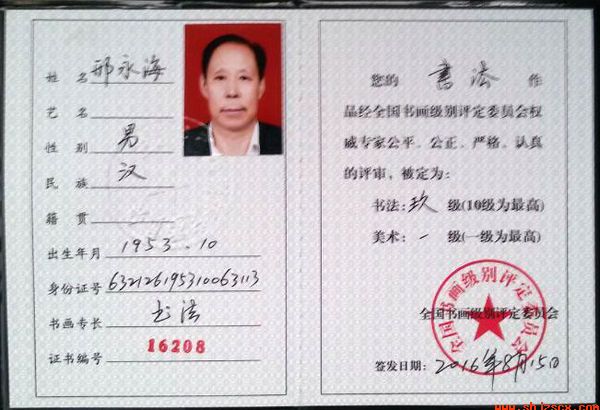 姓名 邢永海
艺名
性别 男
民族 汉
籍贯
出生年月 1953.10
身份证号 632126195310063113
书画专长 书法
证书编号 16208
您的 书法 作
品经全国书画级别评定委员会权
威专家公平、公正、严格、认真
的评审，被定为：
书法：玖 级(10级为最高)
美术：一 级(一级为最高)
全国书画级别评定委员会
全国书画级别评定委员会
签发日期：2016年8月15日
www.shjzscx.com